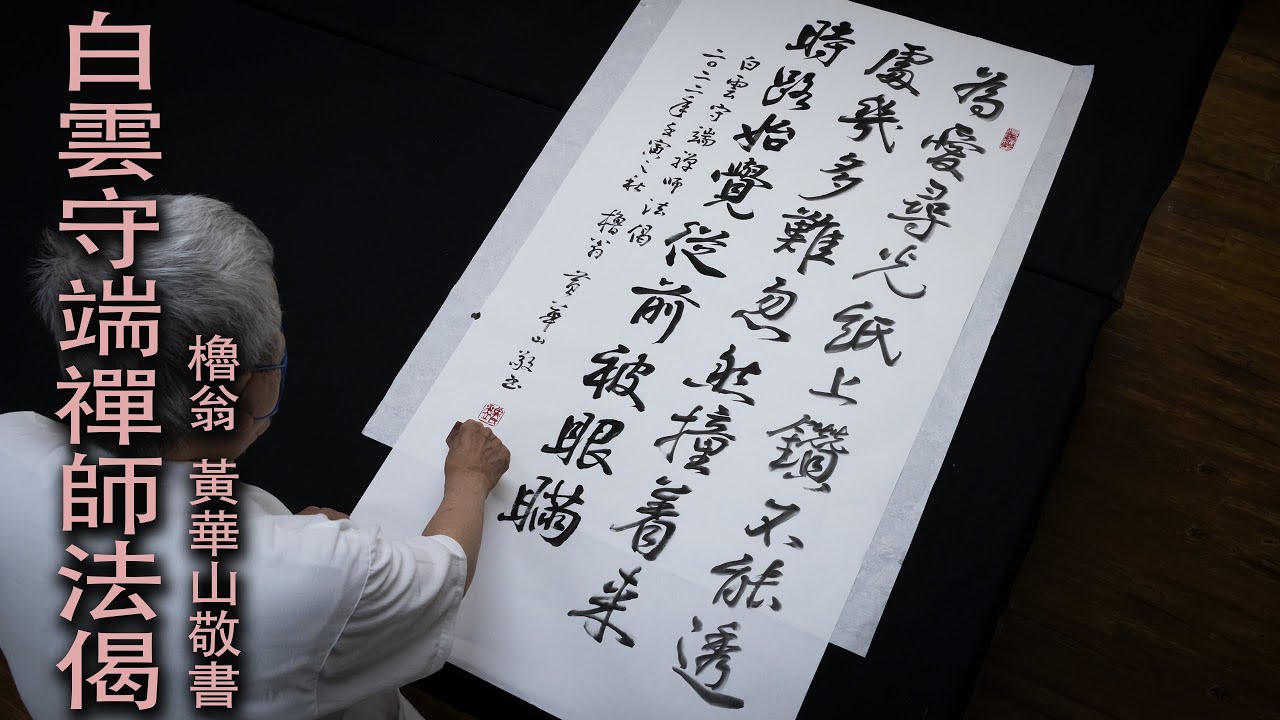 白雲守端禪師法偈
櫓翁 黃華山敬書
為愛尋光紙上鑽不能透
處幾多難忽然撞着來
時路始覺從前被眼瞞
白雲守端禪師法偈
二〇二二年壬寅之秋 櫓翁 黃華山敬書